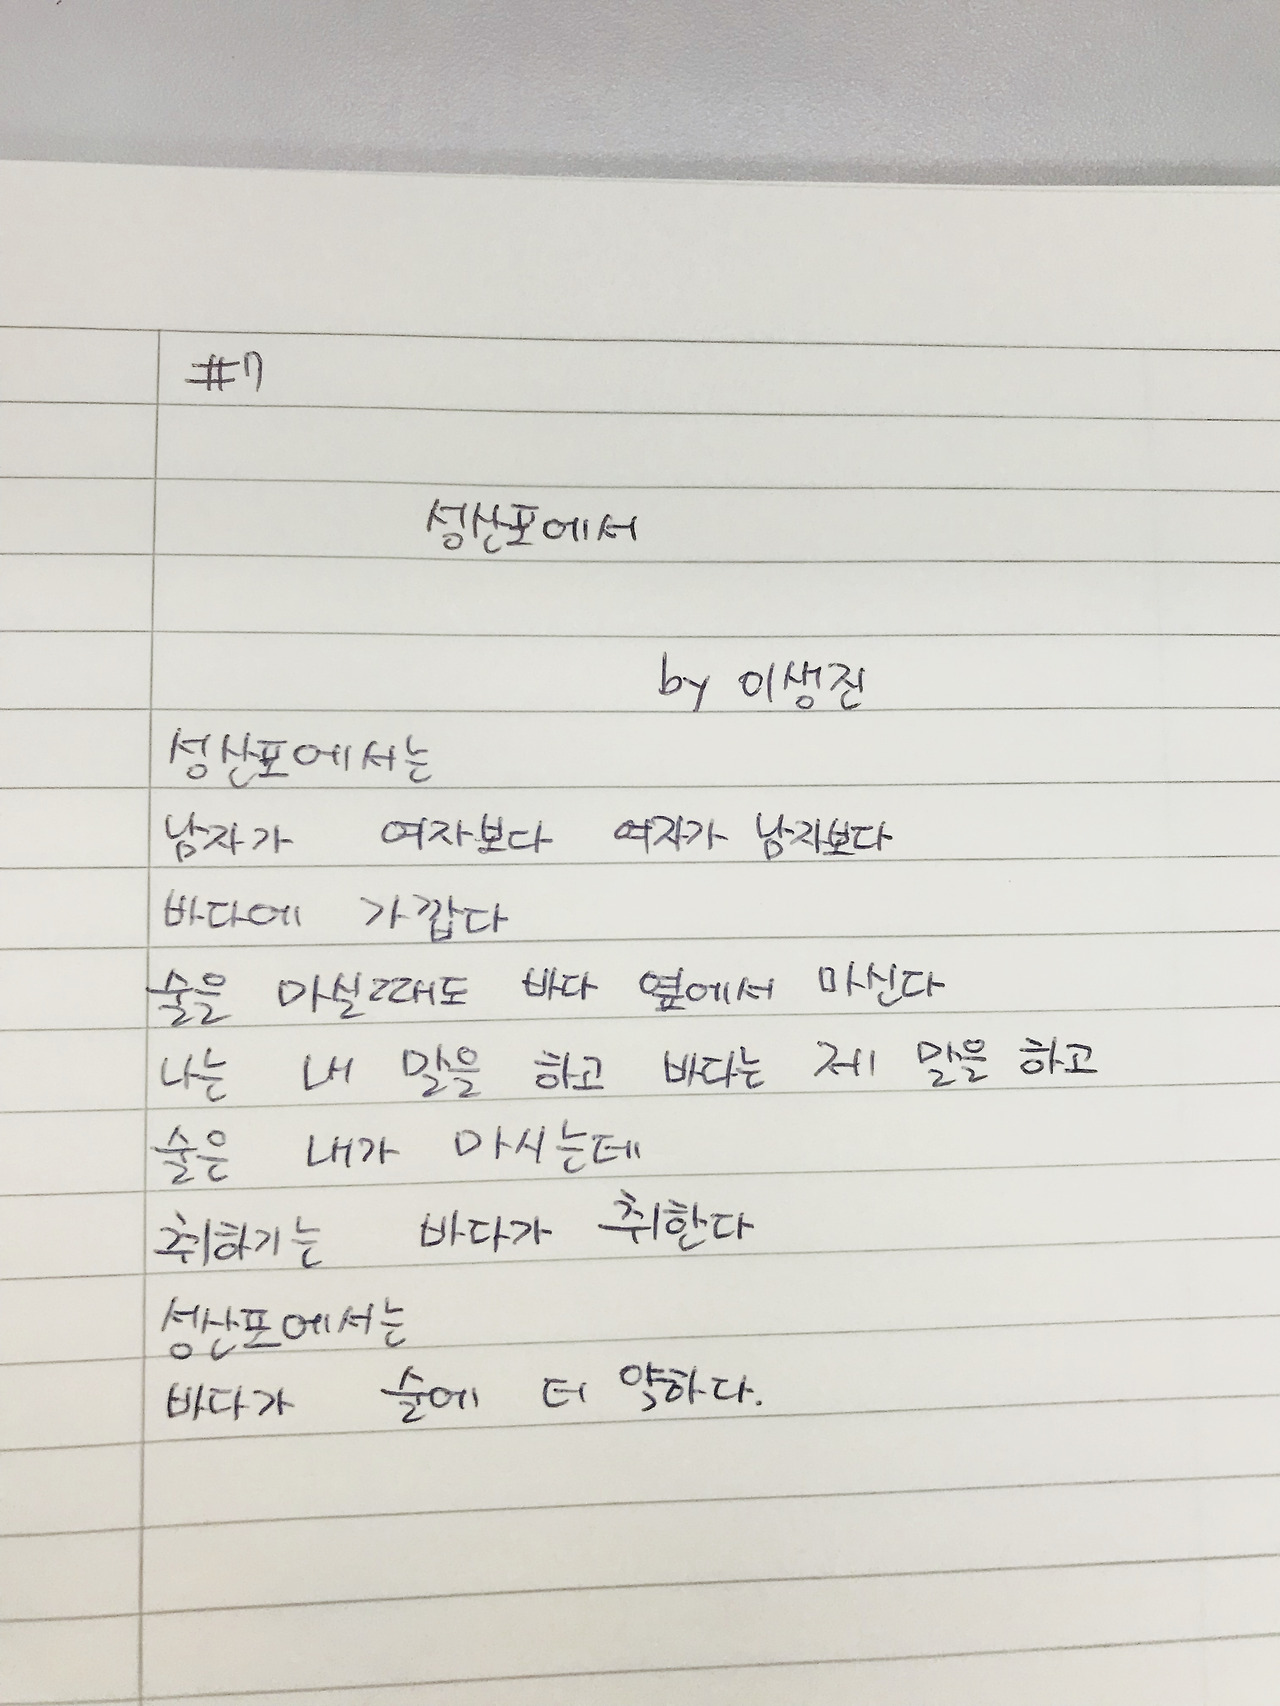 #7
성산포에서
by 이생진
성산포에서는
남자가 여자보다 여자가 남자보다
바다에 가깝다
술을 마실때도 바다 옆에서 마신다
나는 내 말을 하고 바다는 제 말을 하고
술은 내가 마시는데
취하기는 바다가 취한다
성산포에서는
바다가 술에 더 약하다.